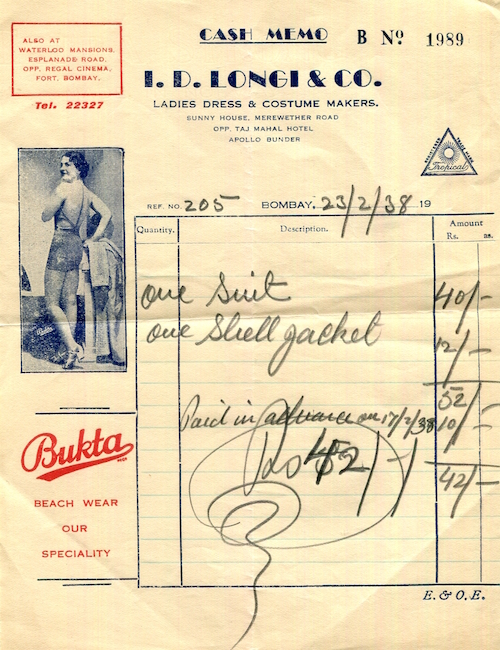 CASH MEMO
B Nº 1989
ALSO AT
WATERLOO MANSIONS,
ESPLANADE ROAD,
OPP. REGAL CINEMA,
FORT, BOMBAY.
Tel. 22327
I. D. LONGI & CO.
LADIES DRESS & COSTUME MAKERS.
SUNNY HOUSE, MEREWETHER ROAD
OPP. TAJ MAHAL HOTEL
APOLLO BUNDER
REGISTERED TRADE MARK
Tropical
REF. NO. 205 BOMBAY, 23/2/38 19
Quantity. Description. Amount
Rs. as.
one Suit 40/-
one Shell jacket 12/-
52/-
Paid in advance on 17/2/38 10/-
Rs 42/-/-
42/-
Bukta
Bukta
BEACH WEAR
OUR
SPECIALITY
E. & O. E.